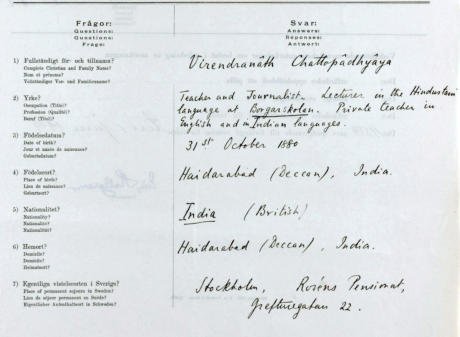 Frågor:
Questions:
Questions:
Frage:
Svar:
Answers:
Réponses:
Antwort:
1) Fullständigt för- och tillnamn?
Complete Christian and Family Names?
Nom et prénoms?
Vollständiger Vor- und Familienname?
Virendranāth Chattopâdhyâya
2) Yrke?
Occupation (Title)?
Profession (Qualité)?
Beruf (Titel)?
Teacher and Journalist. Lecturer in the Hindustani
language at Borgarskolan. Private teacher in
English and in Indian languages.
3) Födelsedatum?
Date of birth?
Jour et année de naissance?
Geburtsdatum?
31st October 1880
4) Födelseort?
Place of birth?
Lieu de naissance?
Geburtsort?
Haidarabad (Deccan), India.
5) Nationalitet?
Nationality?
Nationalité?
Nationalität?
India (British)
6) Hemort?
Domicile?
Domicile?
Heimatsort?
Haidarabad (Deccan), India.
7) Egentliga vistelseorten i Sverige?
Place of permanent sojourn in Sweden?
Lieu de séjour permanent en Suède?
Eigentlicher Aufenthaltsort in Schweden?
Stockholm, Roséns Pensionat,
Grefturegatan 22.